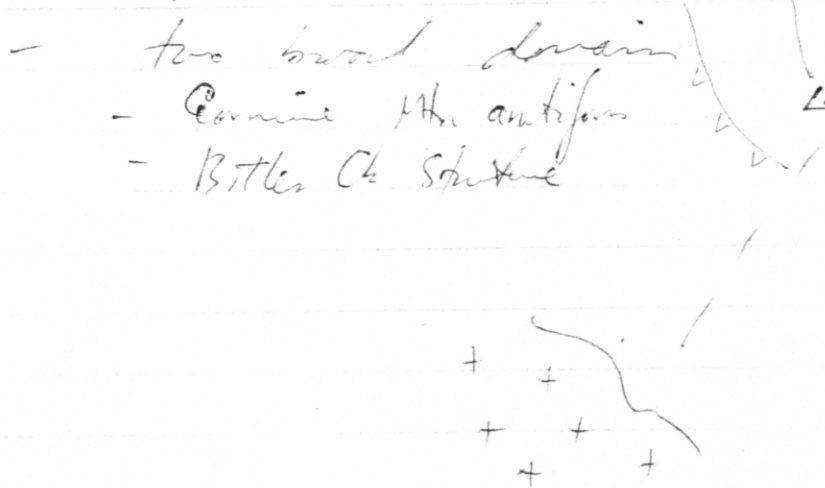 - two broad domains
- Carmine Mtn antiform
- Bitler Ck Structure